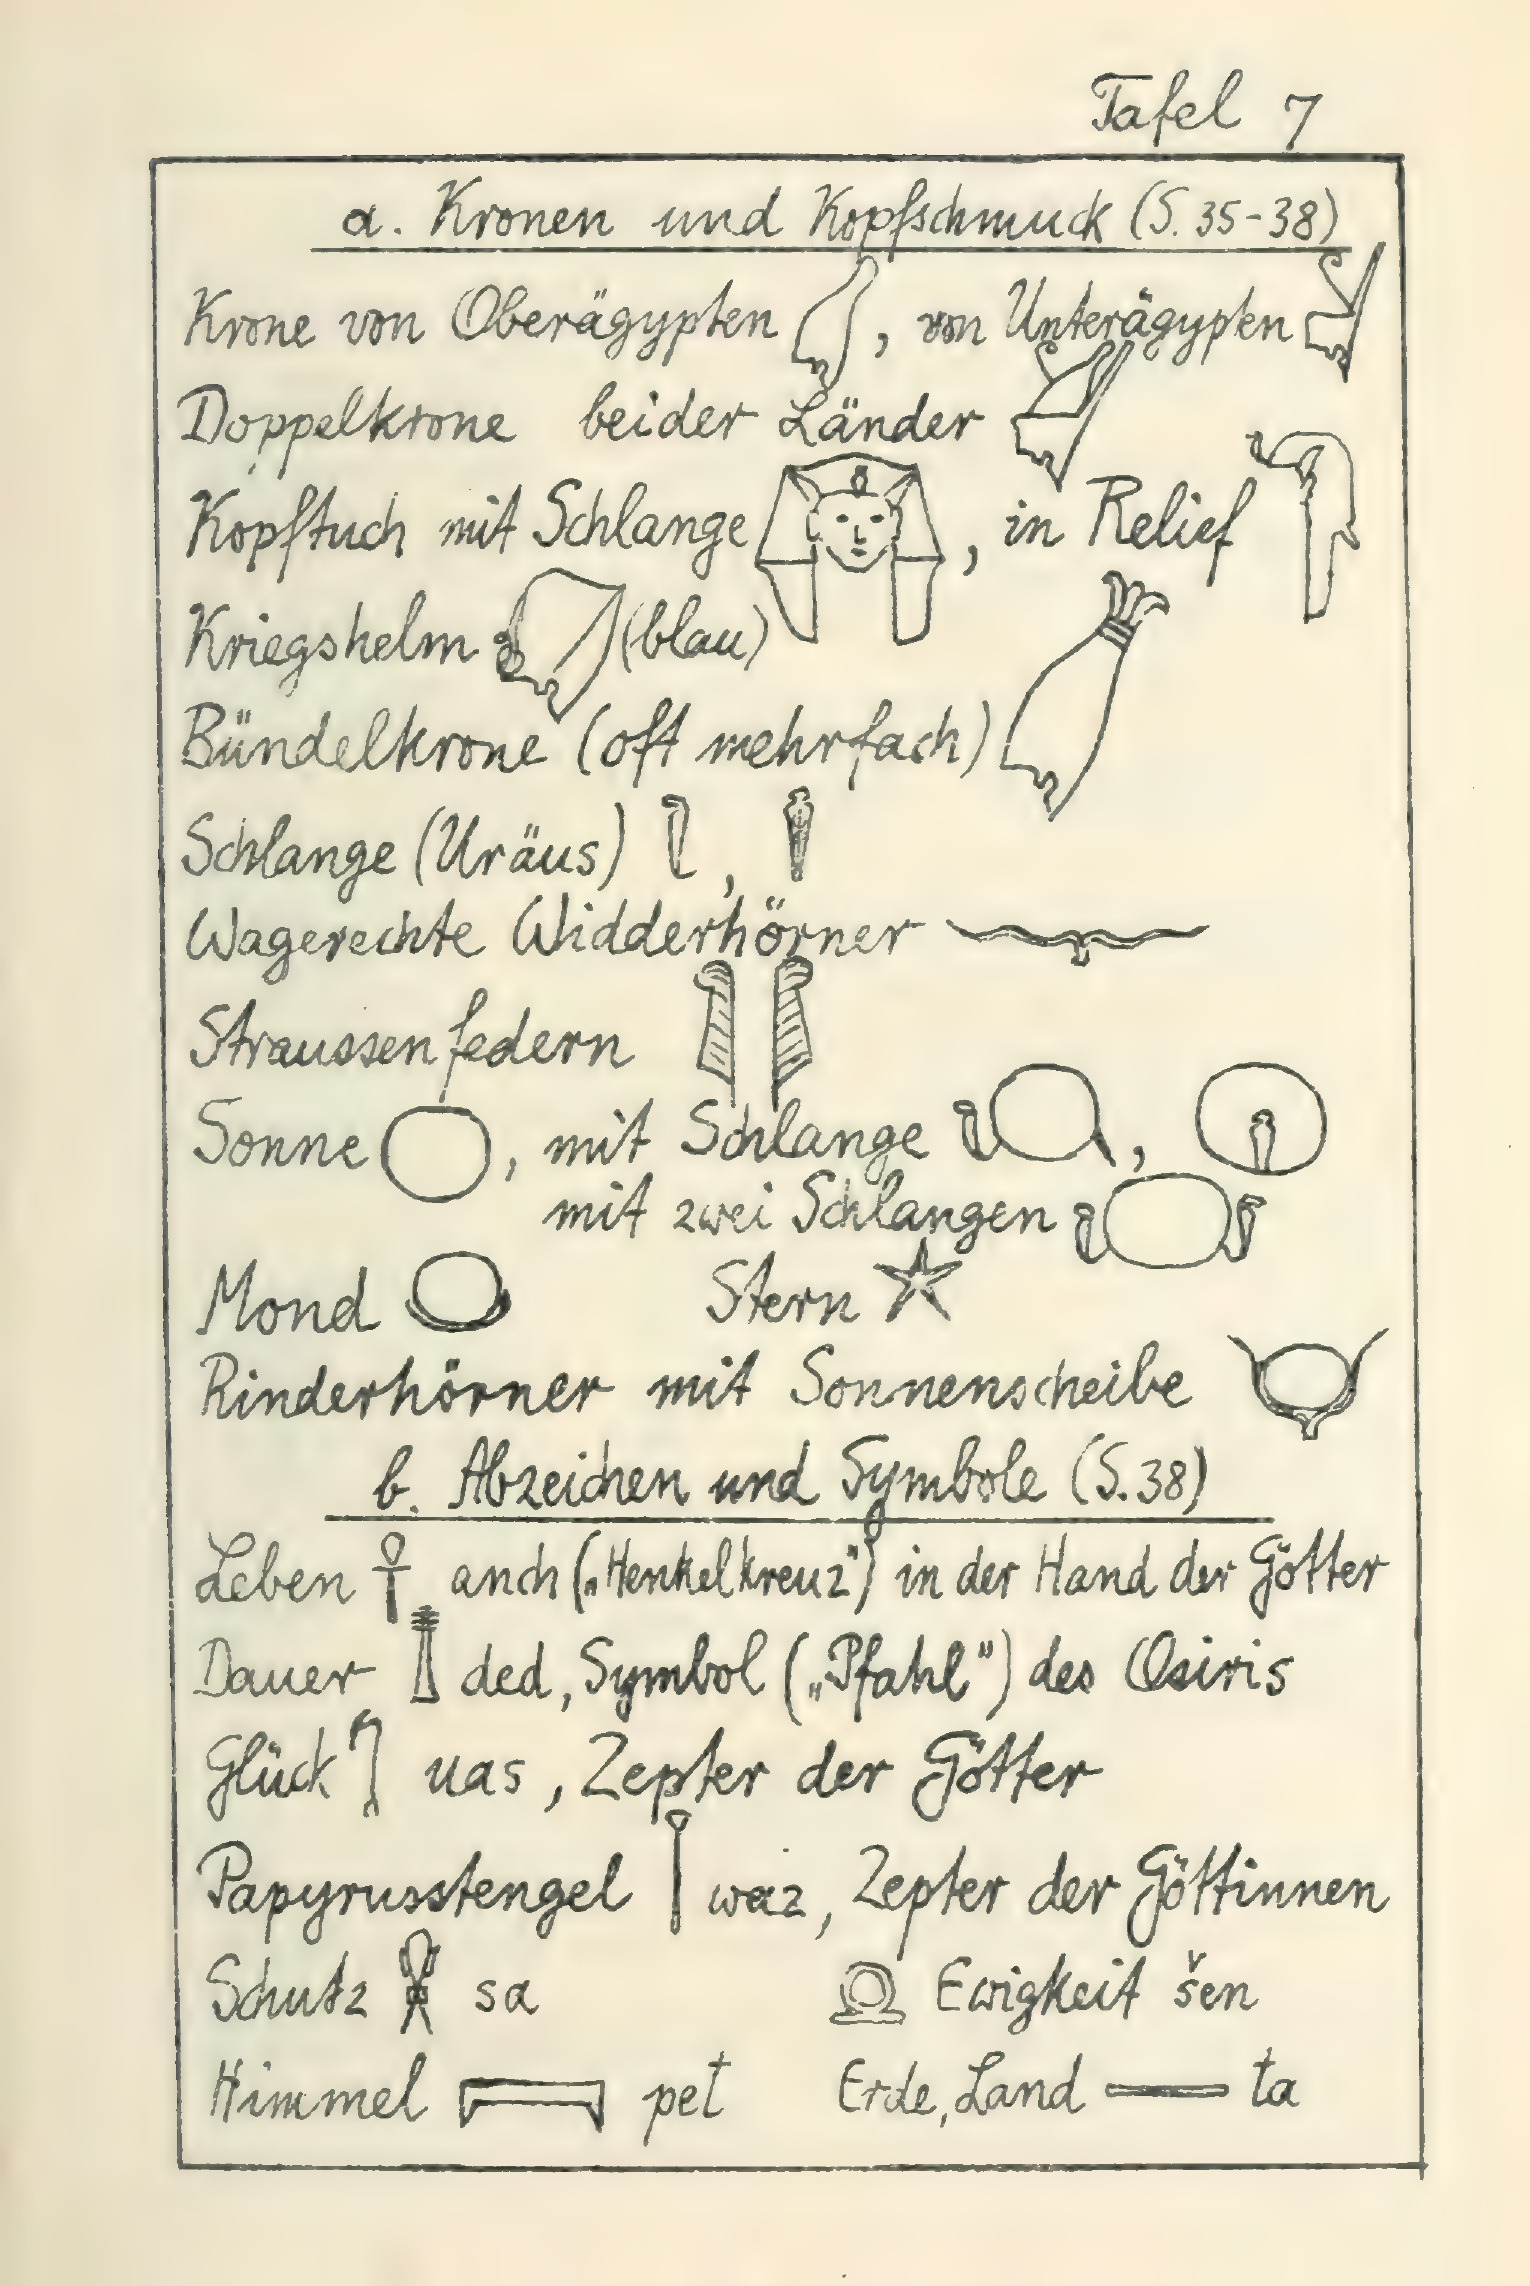 Tafel 7
a. Kronen und Kopfschmuck (S. 35-38)
Krone von Oberägypten , von Unterägypten
Doppelkrone beider Länder
Kopftuch mit Schlange , in Relief
Kriegshelm (blau)
Bündelkrone (oft mehrfach)
Schlange (Uräus) ,
Wagerechte Widderhörner
Straussenfedern
Sonne , mit Schlange ,
mit zwei Schlangen
Mond Stern
Rinderhörner mit Sonnenscheibe
b. Abzeichen und Symbole (S. 38)
Leben anch („Henkelkreuz") in der Hand der Götter
Dauer ded, Symbol („Pfahl") des Osiris
Glück uas, Zepter der Götter
Papyrusstengel waz, Zepter der Göttinnen
Schutz sa Ewigkeit šen
Himmel pet Erde, Land ta